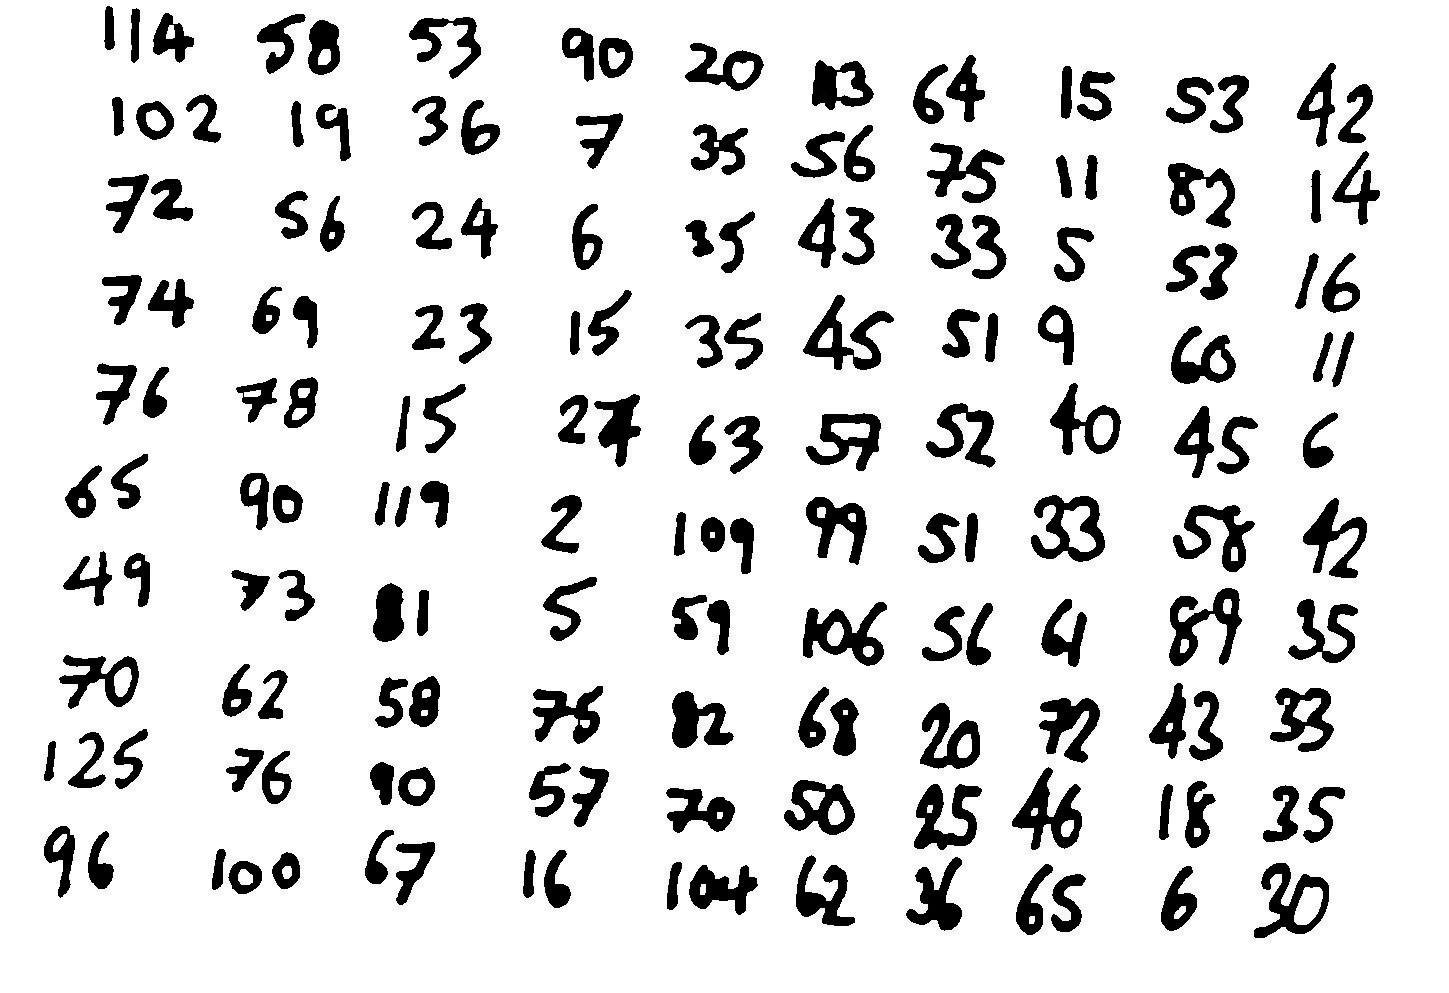 114 58 53 90 20 113 64 15 53 42
102 19 36 7 35 56 75 11 82 14
72 56 24 6 35 43 33 5 53 16
74 69 23 15 35 45 51 9 60 11
76 78 15 63 57 52 40 45 6
65 90 119 2 109 99 51 33 58 42
49 73 81 5 59 106 56 61 89 35
70 62 58 75 82 68 20 72 43 33
125 76 90 57 70 50 25 46 18 35
96 100 67 16 104 62 36 65 6 30